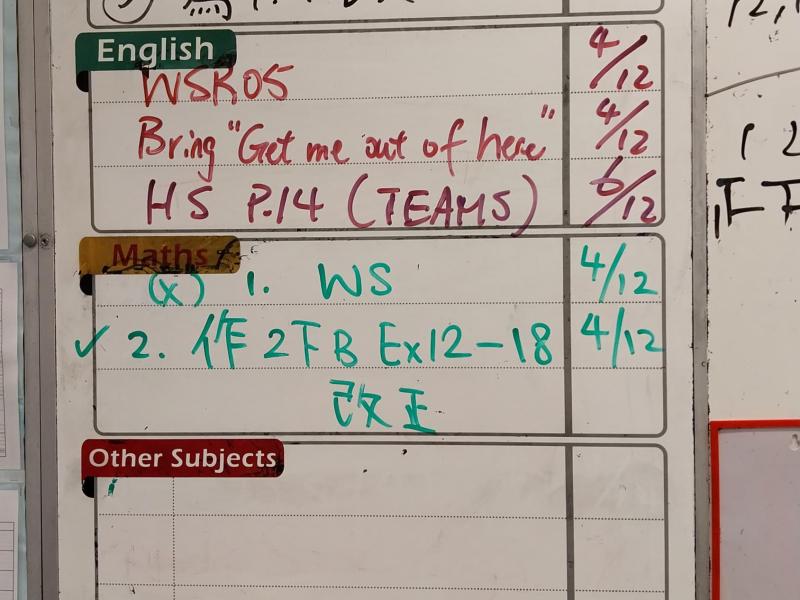 English
WSR05 4/12
Bring "Get me out of here" 4/12
HS P.14 (TEAMS) 6/12
Maths
(x) 1. WS 4/12
✓ 2. 作2下B Ex12-18 4/12
改正
Other Subjects